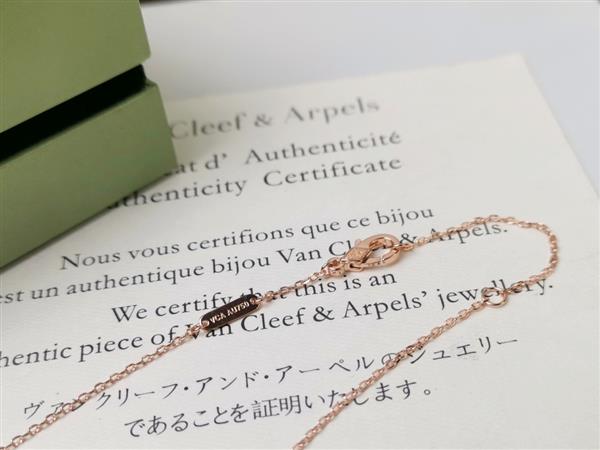 Cleef & Arpels
d' Authenticité
Authenticity Certificate
Nous vous certifions que ce bijou
est un authentique bijou Van Cleef & Arpels.
We certify that this is an
authentic piece of Van Cleef & Arpels' jewellery.
ヴァン クリーフ・アンド・アーペルのジュエリー
であることを証明いたします。
VCA AU750